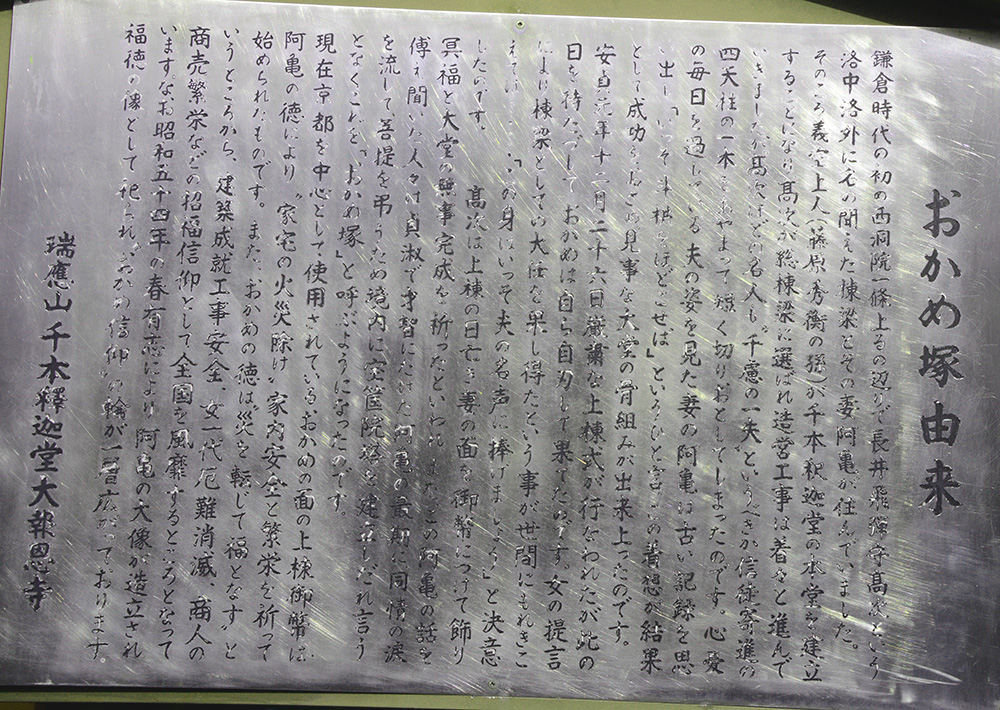 おかめ塚由来
鎌倉時代の初め西洞院一條上るの辺りで長井飛騨守高次という
洛中洛外に名の聞えた棟梁とその妻阿亀が住んでいました。
そのころ義空上人(藤原秀衡の孫)が千本釈迦堂の本堂を建立
することになり高次が総棟梁に選ばれ造営工事は着々と進んで
いきましたが高次ほどの名人も"千慮の一失"というべきか信徒寄進の
四天柱の一本をあやまって短く切りおとしてしまったのです。心憂
の毎日を過している夫の姿を見た妻の阿亀は古い記録を思
い出し「いっそ斗栱をほどこせば」というひと言 の着想が結果
として成功をおさめ見事な大堂の骨組みが出来上ったのです。
安貞元年十二月二十六日厳粛な上棟式が行なわれたが此の
日を待たずして、おかめは自ら自刃して果てたのです。女の提言
により棟梁としての大任を果し得たという事が世間にもれきこ
えて 「 身はいっそ夫の名声に捧げましょう」と決意
したのです。 高次は上棟の日亡き妻の面を御幣につけて飾り
冥福と大堂の無事完成を祈ったといわれ、またこの阿亀の話を
傳え聞いた人々は貞淑で才智にたけた阿亀の最期に同情の涙
を流して、菩提を弔うため境内に宝篋院塔を建立しだれ言う
となくこれを「おかめ塚」と呼ぶようになったのです。
現在京都を中心として使用されているおかめの面の上棟御幣は
阿亀の徳により"家宅の火災除け""家内安全と繁栄を祈って
始められたものです。また、おかめの徳は"災を転じて福となす"と
いうところから、建築成就工事安全、女一代厄難消滅、商人の
商売繁栄などの招福信仰として全国を風靡するところとなって
います。なお昭和五十四年の春有志により阿亀の大像が造立され
福徳の像として祀られ、おかめ信仰の輪が一層広がっております。
瑞應山千本釋迦堂大報恩寺